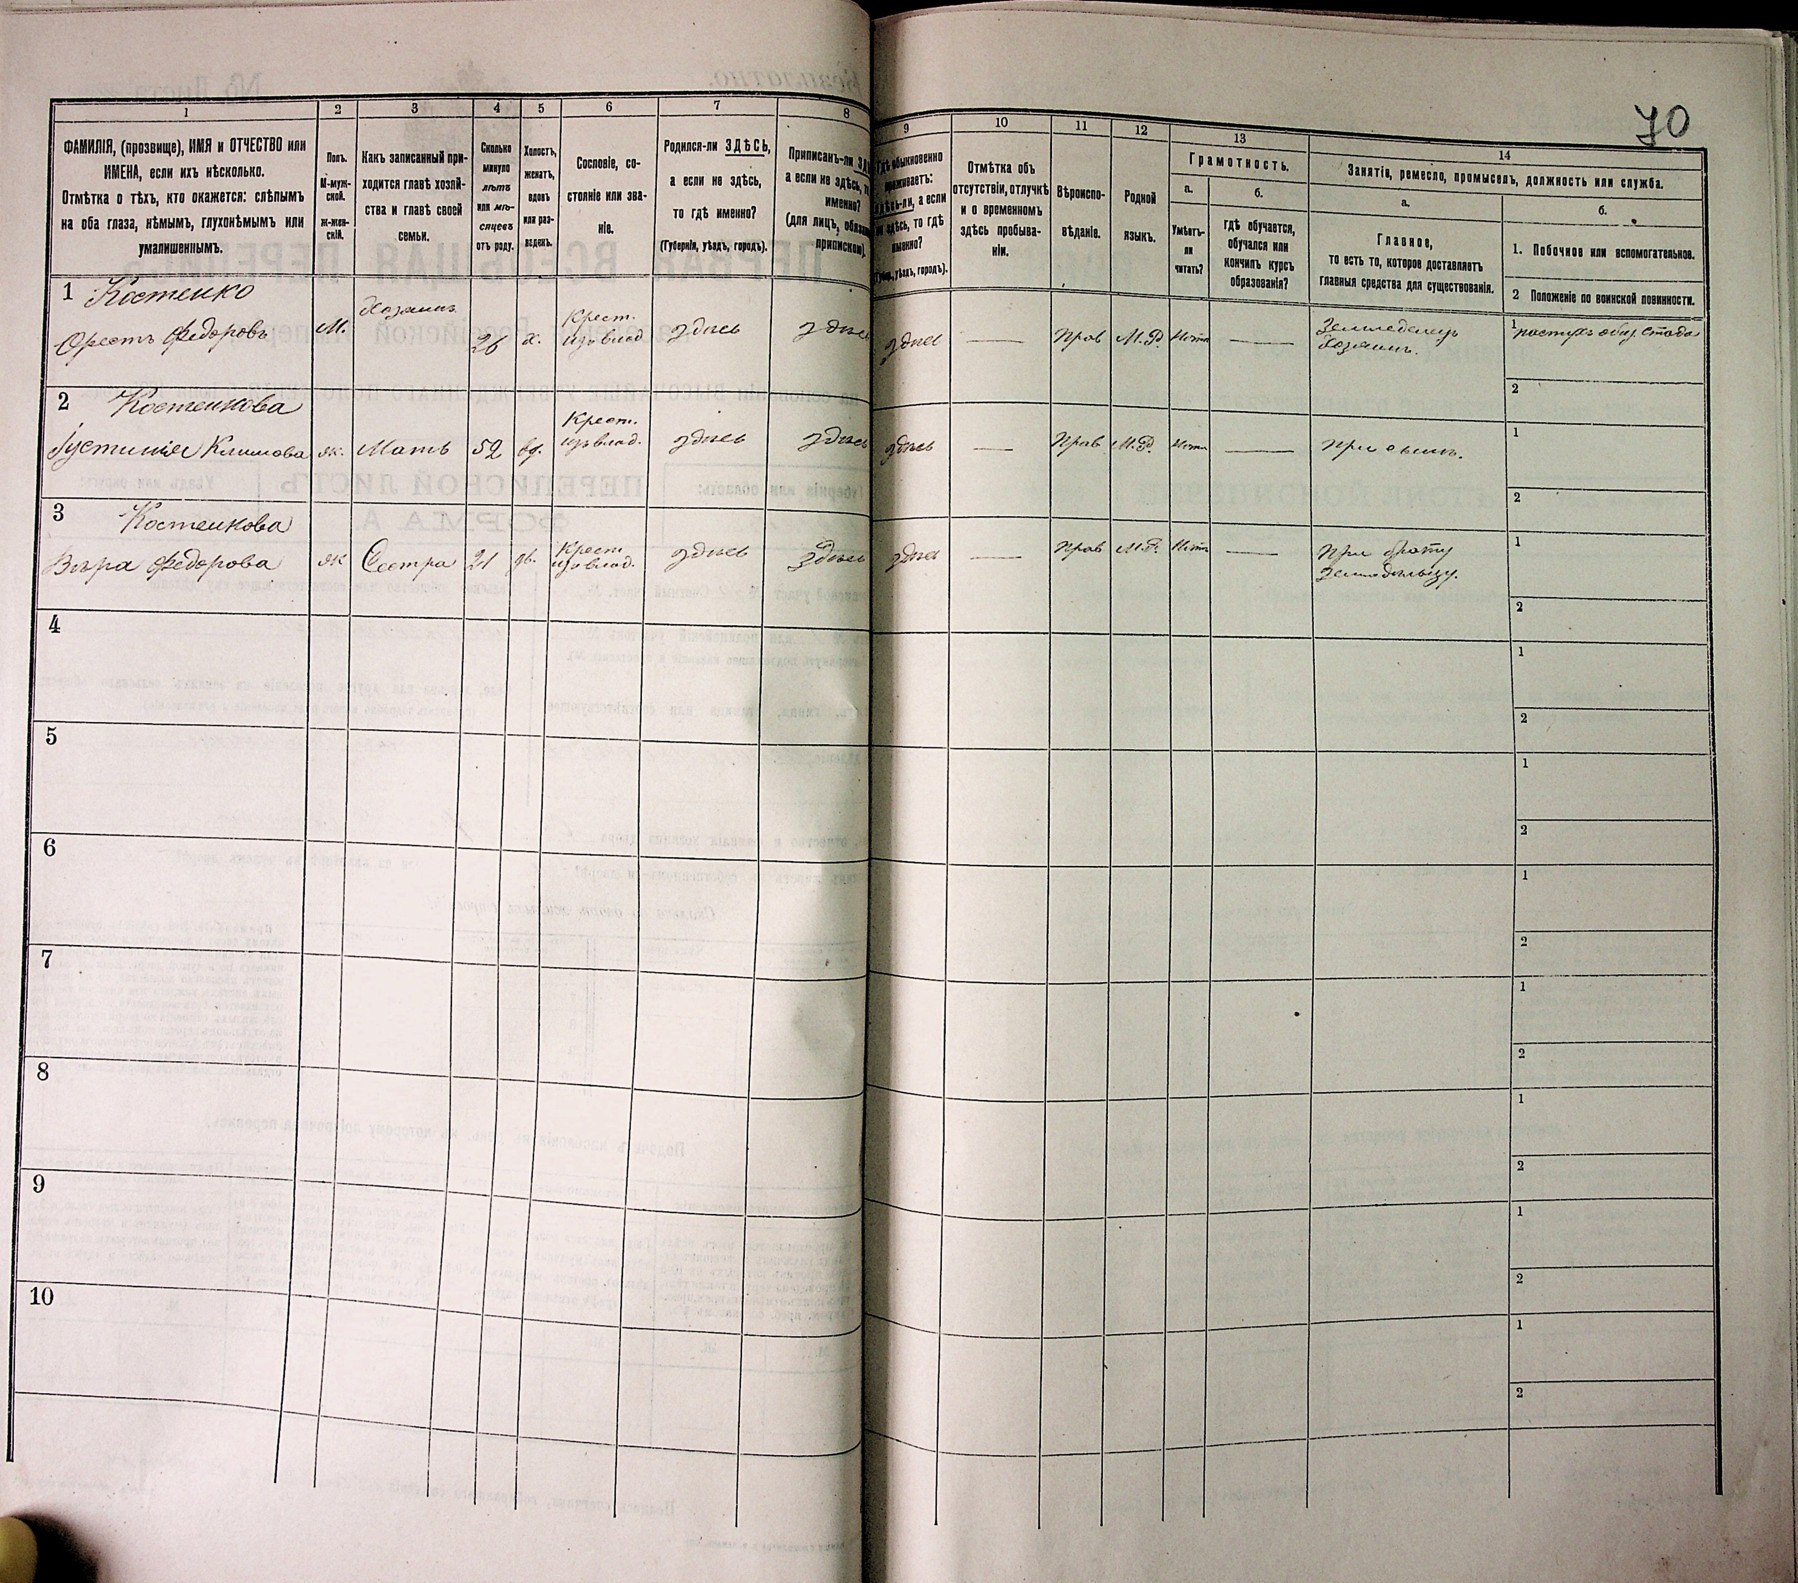 70
1
2
3
4
5
6
7
8
9
10
11
12
13
14
ФАМИЛІЯ, (прозвище), ИМЯ и ОТЧЕСТВО или
ИМЕНА, если ихъ нѣсколько.
Отмѣтка о тѣхъ, кто окажется: слѣпымъ
на оба глаза, нѣмымъ, глухонѣмымъ или
умалишеннымъ.
Полъ.
М-муж-
ской.
Ж-жен-
скій.
Какъ записанный при-
ходится главѣ хозяй-
ства и главѣ своей
семьи.
Сколько
минуло
лѣтъ
или мѣ-
сяцевъ
отъ роду.
Холостъ,
женатъ,
вдовъ
или раз-
веденъ.
Сословіе, со-
стояніе или зва-
ніе.
Родился-ли ЗДѢСЬ,
а если не здѣсь,
то гдѣ именно?
(Губернія, уѣздъ, городъ).
Приписанъ-ли
а если не здѣсь,
именно?
(для лицъ,
припискою).
Гдѣ обыкновенно
проживаетъ:
здѣсь-ли, а если
не здѣсь, то гдѣ
именно?
уѣздъ, городъ).
Отмѣтка объ
отсутствіи, отлучкѣ
и о временномъ
здѣсь пребыва-
ніи.
Вѣроиспо-
вѣданіе.
Родной
языкъ.
Грамотность.
а.
Умѣетъ-
ли
читать?
б.
гдѣ обучается,
обучался или
кончилъ курсъ
образованія?
Занятіе, ремесло, промыселъ, должность или служба.
а.
Главное,
то есть то, которое доставляетъ
главныя средства для существованія.
б.
1. Побочное или вспомогательное.
2 Положеніе по воинской повинности.
1 Костенко
Орестъ Федоровъ
М.
Хозяинъ
26
х.
Крест.
изъ влад.
здѣсь
здѣсь
здѣсь
Прав
М.Р.
Нѣтъ
Земледѣлецъ
Хозяинъ.
1 пастухъ общ. стада
2
2 Костенкова
Іустинія Климова
ж.
Мать
52
вд.
Крест.
изъ влад.
здѣсь
здѣсь
здѣсь
Прав
М.Р.
Нѣтъ
При сынѣ.
1
2
3 Костенкова
Вѣра Федорова
ж
Сестра
21
дв.
Крест
изъ влад.
здѣсь
здѣсь
здѣсь
Прав
М.Р.
Нѣтъ
При брату
Земледѣльцу.
1
2
4
1
2
5
1
2
6
1
2
7
1
2
8
1
2
9
1
2
10
1
2